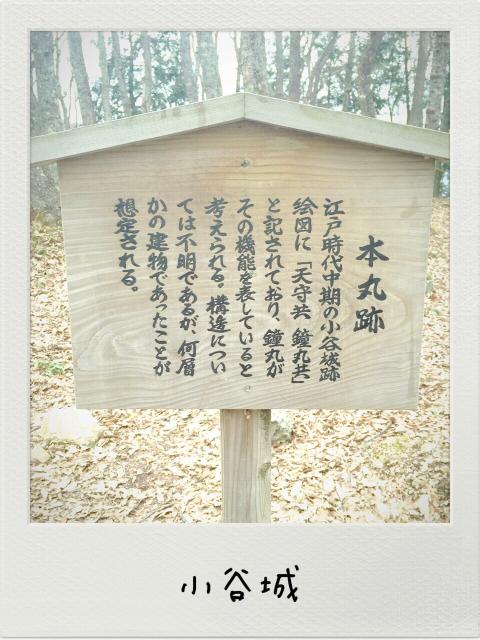 本丸跡
江戸時代中期の小谷城跡
絵図に「天守共 鐘丸共」
と記されており、鐘丸が
その機能を表していると
考えられる。構造につい
ては不明であるが、何層
かの建物であったことが
想定される。
小谷城